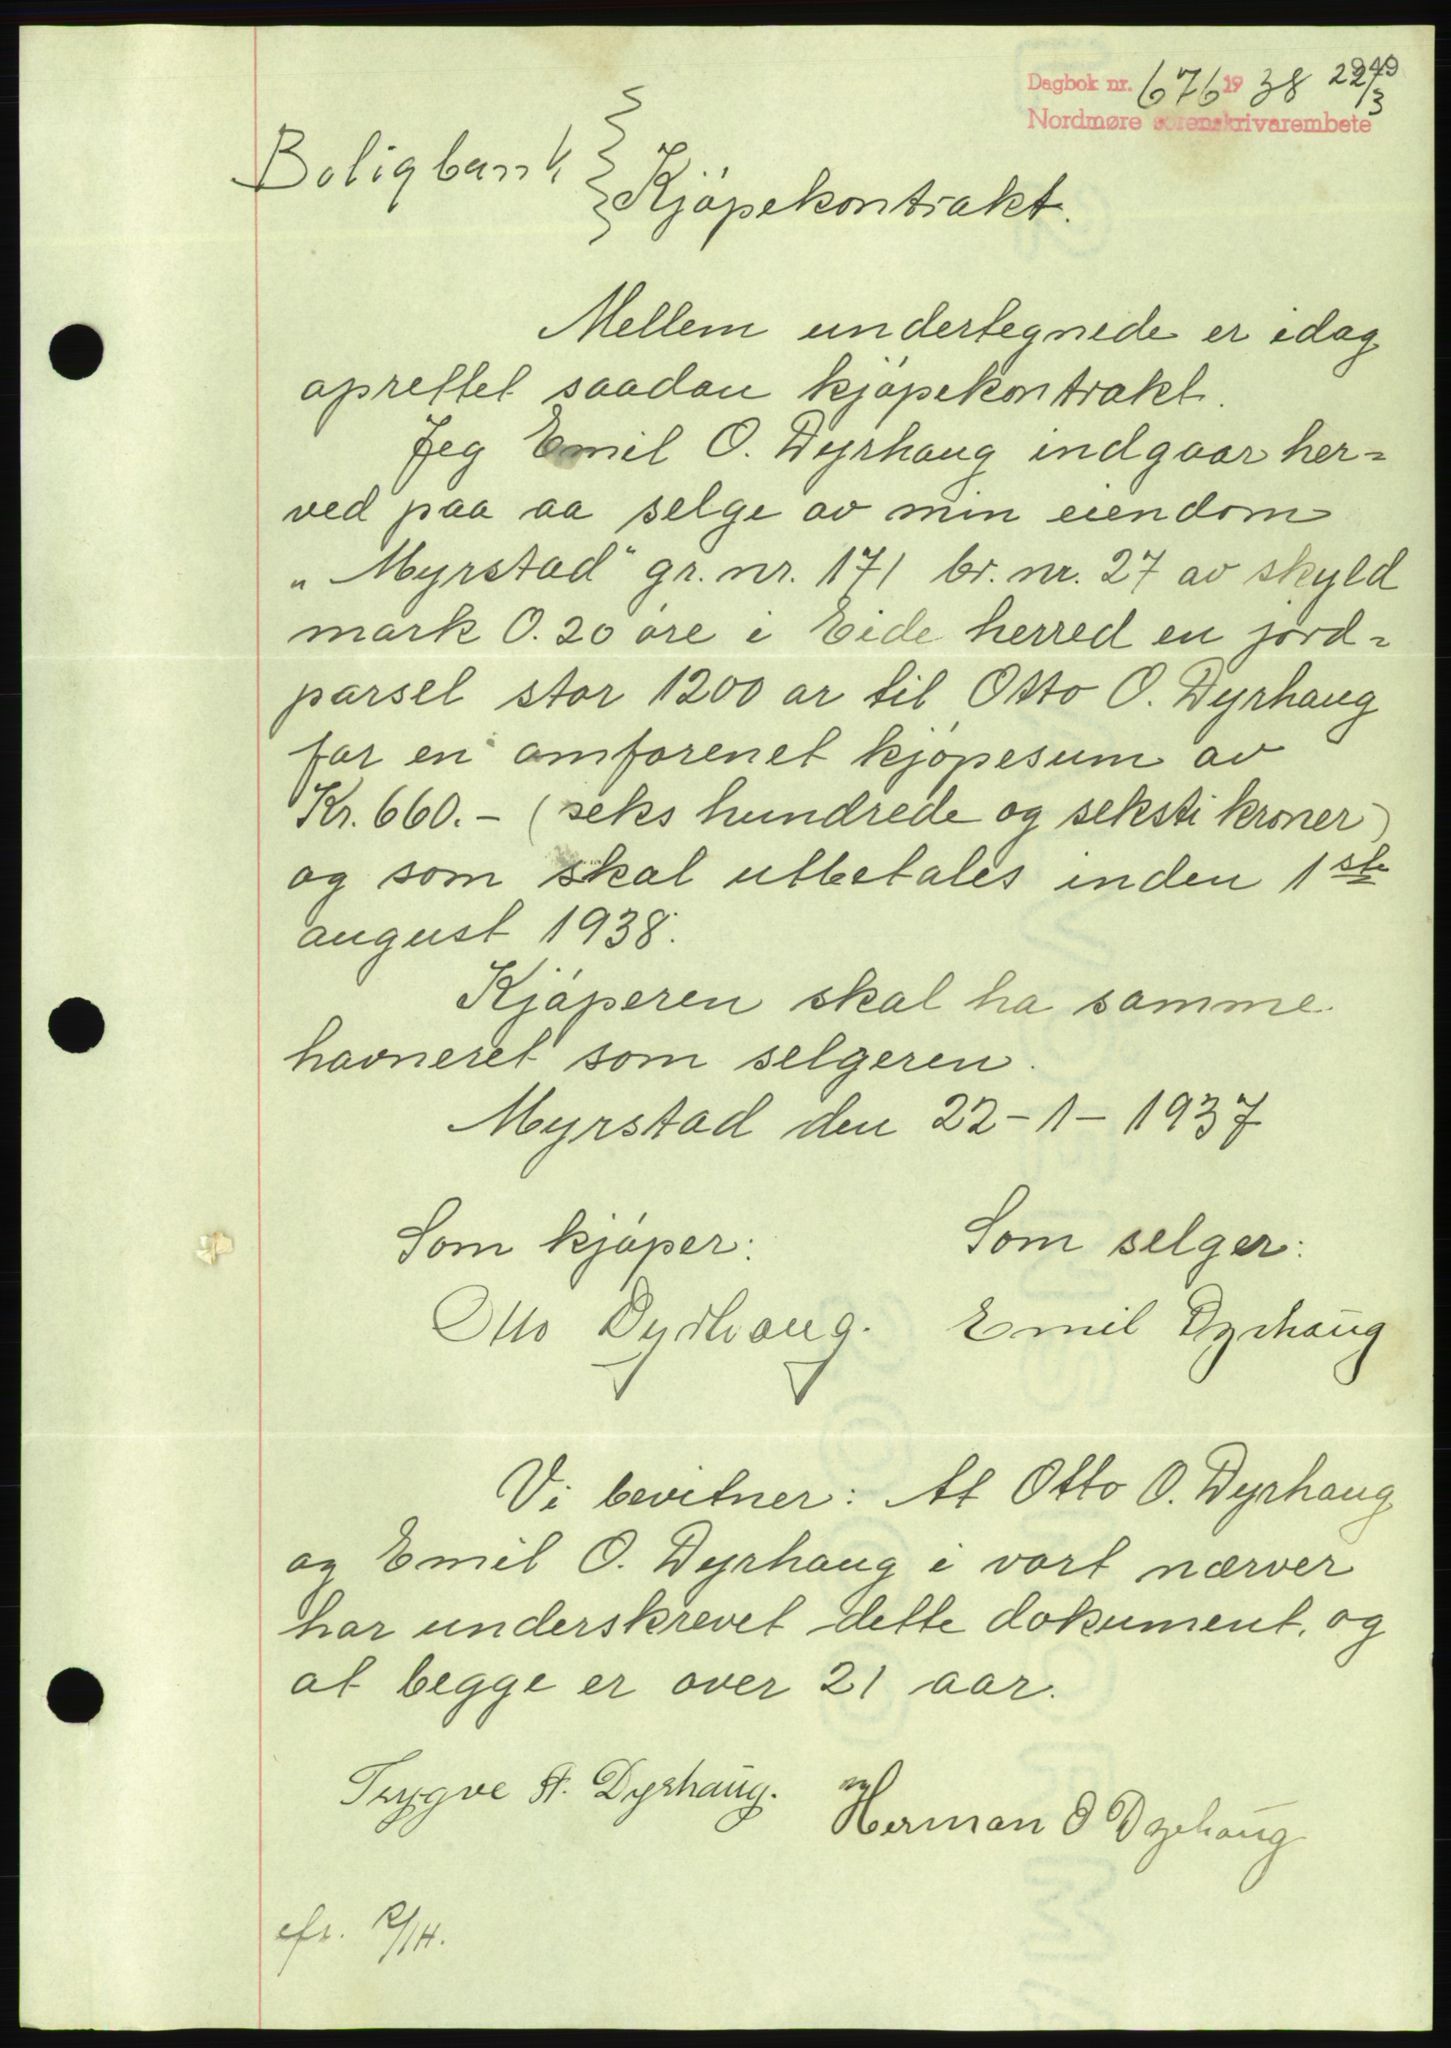 Dagbok nr. 676 1938 22/3
Nordmøre sorenskrivarembete
Boligbank
Kjøpekontrakt.
Mellem undertegnede er idag
oprettet saadan kjøpekontrakt.
Jeg Emil O. Dyrhaug indgaar her=
ved paa aa selge av min eiendom
„Myrstad" gr. nr. 171 br. nr. 27 av skyld
mark 0.20 øre i Eide herred en jord=
parsel stor 1200 ar til Otto O. Dyrhaug
for en omforenet kjøpesum av
Kr. 660.- (seks hundrede og seksti kroner)
og som skal utbetales inden 1ste
august 1938.
Kjøperen skal ha samme
havneret som selgeren.
Myrstad den 22-1-1937
Som kjøper: Som selger:
Otto Dyrhaug. Emil Dyrhaug
Vi bevitner: At Otto O. Dyrhaug
og Emil O. Dyrhaug i vort nærver
har underskrevet dette dokument, og
at begge er over 21 aar.
Trygve A. Dyrhaug. Herman O Dyrhaug